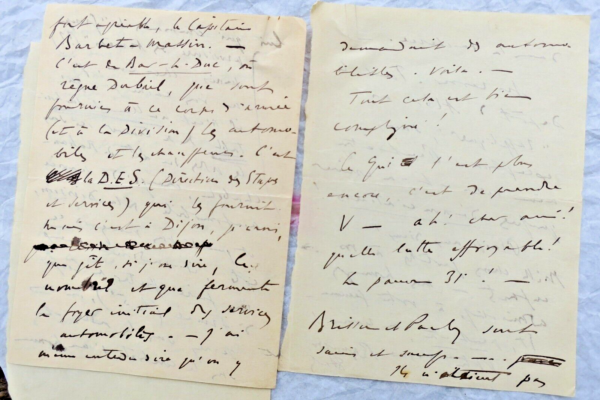 fort agréable, le Capitaine
Barbet-Massin. —
C'est de Bar-le-Duc, où
règne Dubail, que sont
fournies à ce corps d'armée
(et à la Division) les automo-
biles et les chauffeurs. C'est
la D.E.S. (Direction des Etapes
et Services) qui les fournit
mais c'est à Dijon, je crois,
que gît, si j'ose dire, le
nombril et que fermente
le foyer initial des services
automobiles. — J'ai
même entendu dire qu'on y
demandait des automo-
bilistes. Voilà. —
Tout cela est bien
compliqué!
Ce qui l'est plus
encore c'est de prendre
V — ah! cher ami!
quelle lutte effroyable!
Le pauvre 31e! —
Brisson et Pauly sont
sains et saufs. —
Ils n'étaient pas